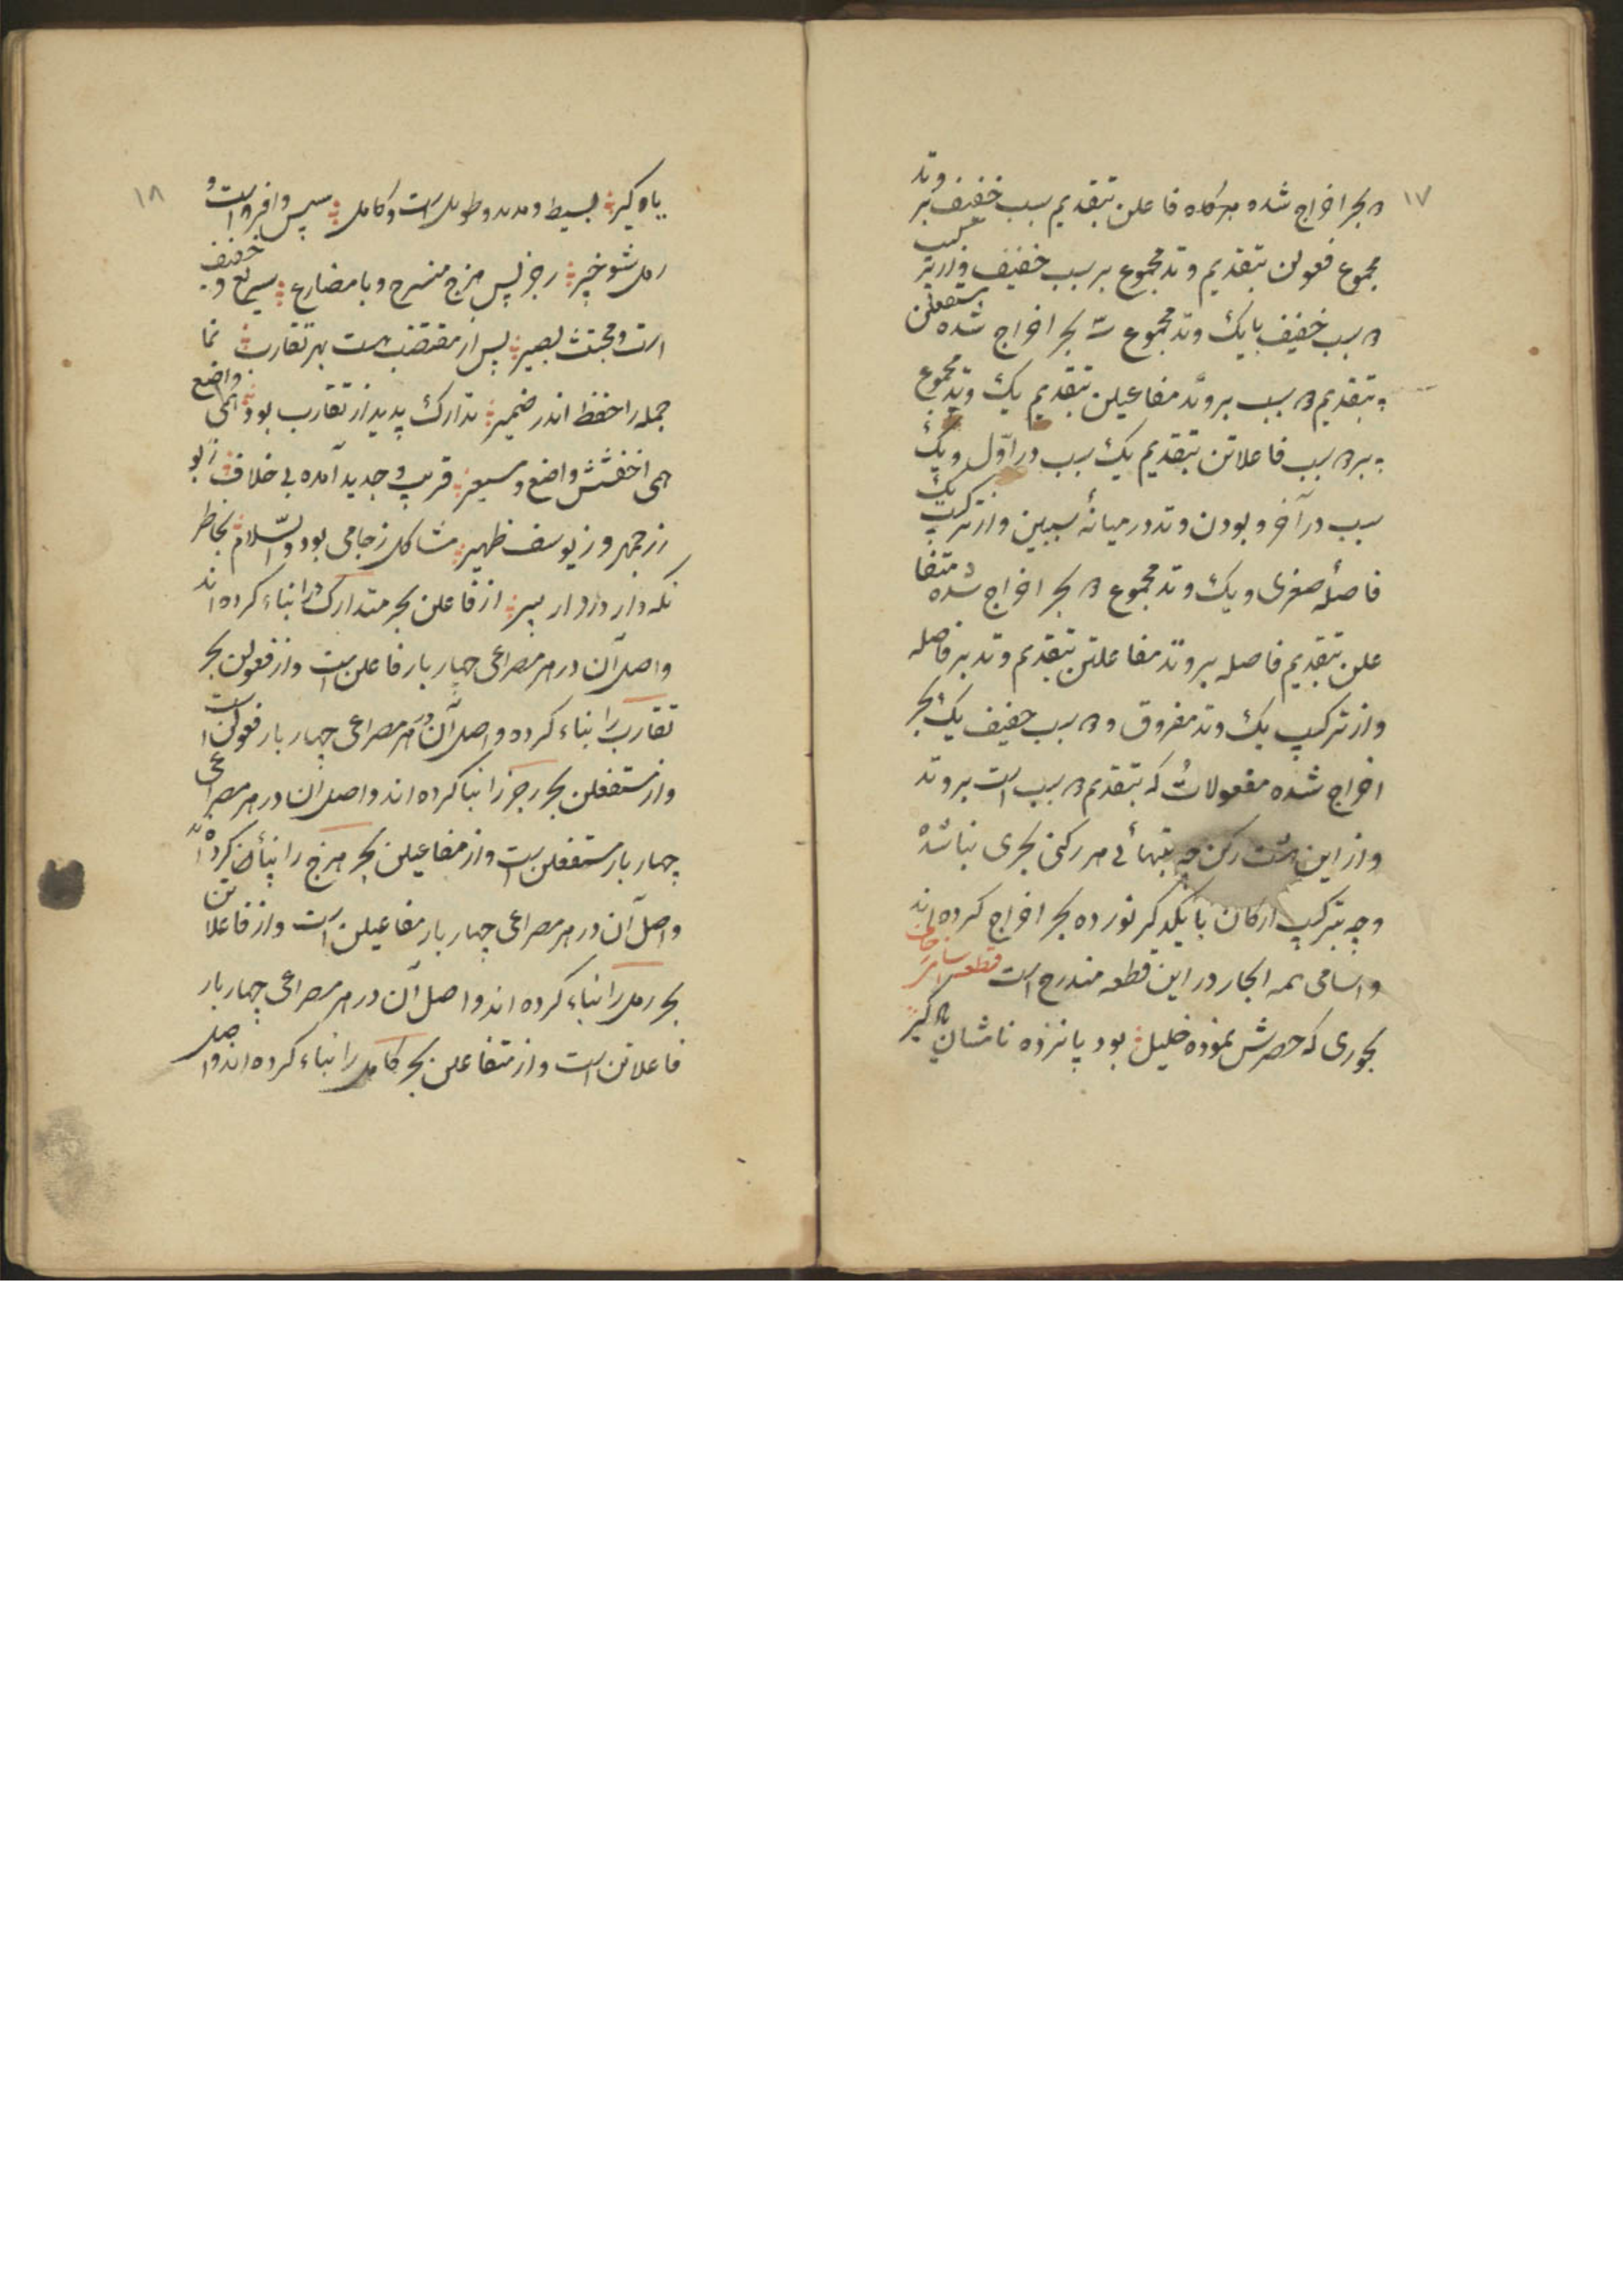 ۱۷
دو بحر اخراج شده بدینگاه فاعلن بتقدیم سبب خفیف بر وتد
مجموع فعولن بتقدیم وتد مجموع بر سبب خفیف و از ترکیب
دو سبب خفیف با یک وتد مجموع سه بحر اخراج شده مستفعلن
بتقدیم دو سبب بر وتد مفاعیلن بتقدیم یک وتد مجموع
بر دو سبب فاعلاتن بتقدیم یک سبب در اوّل و یک
سبب در آخر و بودن وتد در میانهٔ سببین و از ترکیب یک
فاصلهٔ صغری و یک وتد مجموع دو بحر اخراج شده متفا
علن بتقدیم فاصله بر وتد مفاعلتن بتقدیم وتد بر فاصله
و از ترکیب یک وتد مفروق و دو سبب خفیف یک بحر
اخراج شده مفعولاتُ که بتقدیم دو سبب است بر وتد
و از این هشت رکن چه بتنهائی هر رکنی بحری بنا شده
و چه بترکیب ارکان با یکدگر نوزده بحر اخراج کرده اند
و اسامی همه ابحار در این قطعه مندرج است قطعه
بحوری که حصرش نموده خلیل بود پانزده نامشان
۱۸
یاد گیر بسیط و مدید و طویل است و کامل سپس وافر است و
رمل شو خبیر رجز پس هزج منسرح و با مضارع سریع و خفیف
است و مجتث بصیر پس از مقتضب هست بهر تقارب نما
جمله را حفظ اندر ضمیر تدارک پدید از تقارب بود واضع
همی اخفشش واضع و قریب و جدید آمده بی خلاف ز بو
زرجمهر و ز یوسف ظهیر مشاکل ز جامی بود والسّلام بخاطر
نگه دار از فاعلن بحر متدارک را بناء کرده اند
و اصل آن در هر مصراعی چهار بار فاعلن است و از فعولن بحر
تقارب را بناء کرده و اصل آن در هر مصراعی چهار بار فعولن است
و از مستفعلن بحر رجز را بنا کرده اند و اصل آن در هر مصراعی
چهار بار مستفعلن است و از مفاعیلن بحر هزج را بناء کرده اند
و اصل آن در هر مصراعی چهار بار مفاعیلن است و از فاعلاتن
بحر رمل را بناء کرده اند و اصل آن در هر مصراعی چهار بار
فاعلاتن است و از متفاعلن بحر کامل را بناء کرده اند و اصل